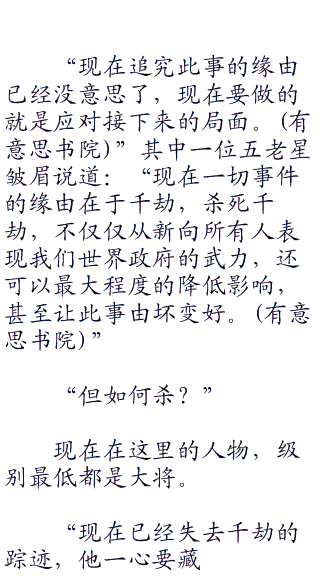 “现在追究此事的缘由
已经没意思了，现在要做的
就是应对接下来的局面。(有
意思书院)” 其中一位五老星
皱眉说道： “现在一切事件
的缘由在于千劫，杀死千
劫，不仅仅从新向所有人表
现我们世界政府的武力，还
可以最大程度的降低影响，
甚至让此事由坏变好。(有意
思书院)”
“但如何杀？”
现在在这里的人物，级
别最低都是大将。
“现在已经失去千劫的
踪迹，他一心要藏